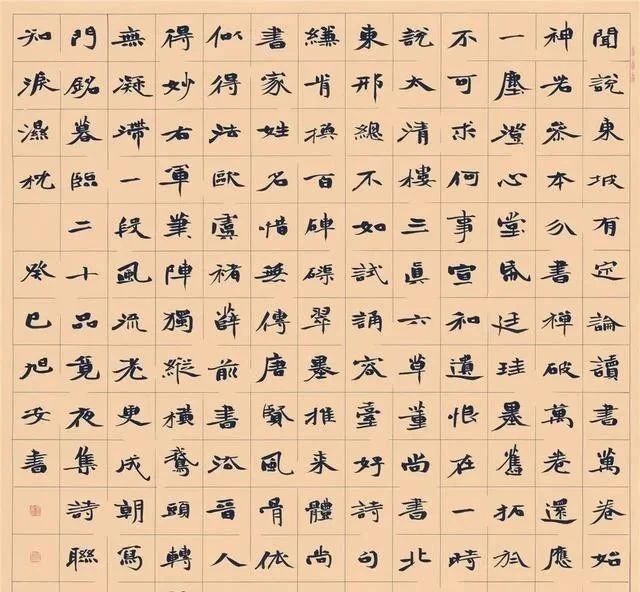 聞說東坡有定論讀書萬卷始
神若參本分書禪破萬卷還應
一塵澄心堂帋廷珪墨舊拓於
不可求何事宣和遺恨在一時
說太清樓三真六草董尚書北
東邢總不如試誦容臺好詩句
縑肯構百硨磲翠墨推來體尚
書家姓名惜無傳唐賢風骨依
似得法歐虞褚薛前書洽晉人
得妙右軍筆陣獨縱橫鵝頭轉
無凝滯一段風流老更成朝寫
門銘暮臨二十品竟夜集詩聯
知淚濕枕 癸巳旭書